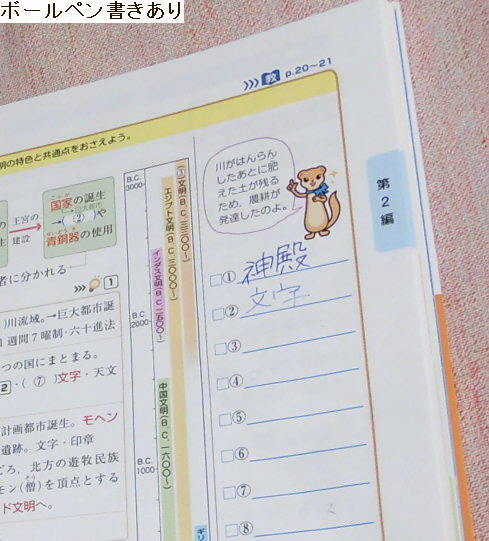 ボールペン書きあり
教 p.20~21
明の特色と共通点をおさえよう。
川がはんらん
したあとに肥
えた土が残る
ため，農耕が
発達したのよ。
第2編
国家の誕生
→( ② )や
青銅器の使用
王宮の
建設
者に分かれる
1
)川流域。→巨大都市誕
1週間7曜制・六十進法
つの国にまとまる。
2・( ⑦ )文字・天文
計画都市誕生。モヘン
遺跡。文字・印章
ごろ，北方の遊牧民族
モン(僧)を頂点とする
ド文明へ。
B.C.
3000
B.C.
2000
B.C.
1000
(①)文明(B.C.三〇〇〇～)
エジプト文明(B.C.三〇〇〇～)
インダス文明(B.C.二五〇〇～)
中国文明(B.C.一六〇〇～)
ギリ
□① 神殿
□② 文字
□③
□④
□⑤
□⑥
□⑦
□⑧